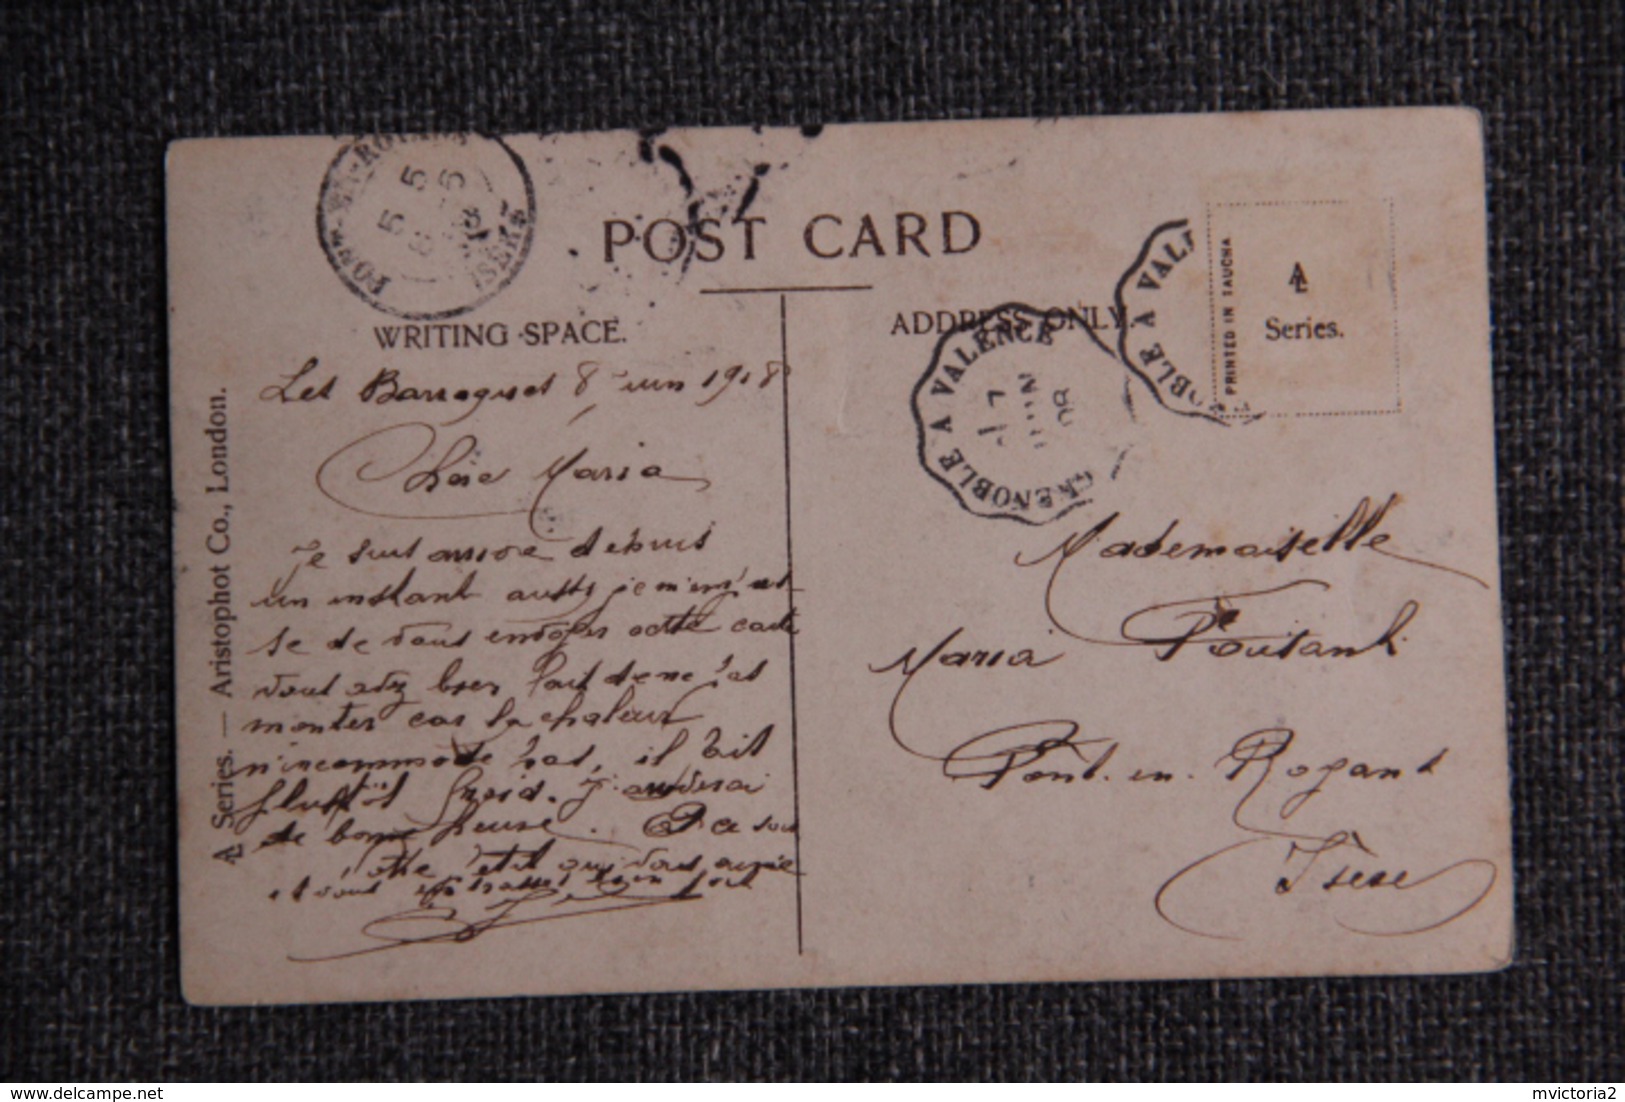 PONT-EN-ROYANS
ISERE
POST CARD
WRITING SPACE.
ADDRESS ONLY.
GRENOBLE A VALENCE
JUIN
08
GRENOBLE
NOBLE A VALE
PRINTED IN TAUCHA
AL
Series.
AL Series. — Aristophot Co., London.
Les Barraques 8 Juin 1918
Chere Maria
Je suis arrivé depuis
un instant aussi je m'empres
se de vous envoyer cette carte
Vous avez bien fait de ne pas
monter car la chaleur
n'incommode pas, il fait
plutôt froid. J'arriverai
de bonne heure.
votre petit qui vous aime
et vous embrasse bien fort
Mademoiselle
Maria
Pont-en-Royans
Isere
mvictoria2